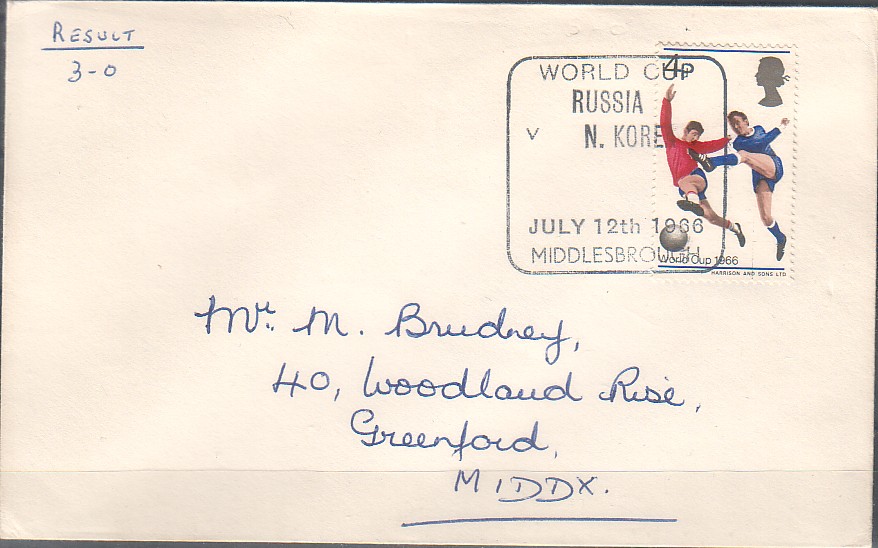 RESULT
3-0
4P
WORLD CUP
RUSSIA
v N. KOREA
JULY 12th 1966
MIDDLESBROUGH
World Cup 1966
HARRISON AND SONS LTD
Mr. M. Brudney,
40, Woodland Rise,
Greenford,
MIDDX.